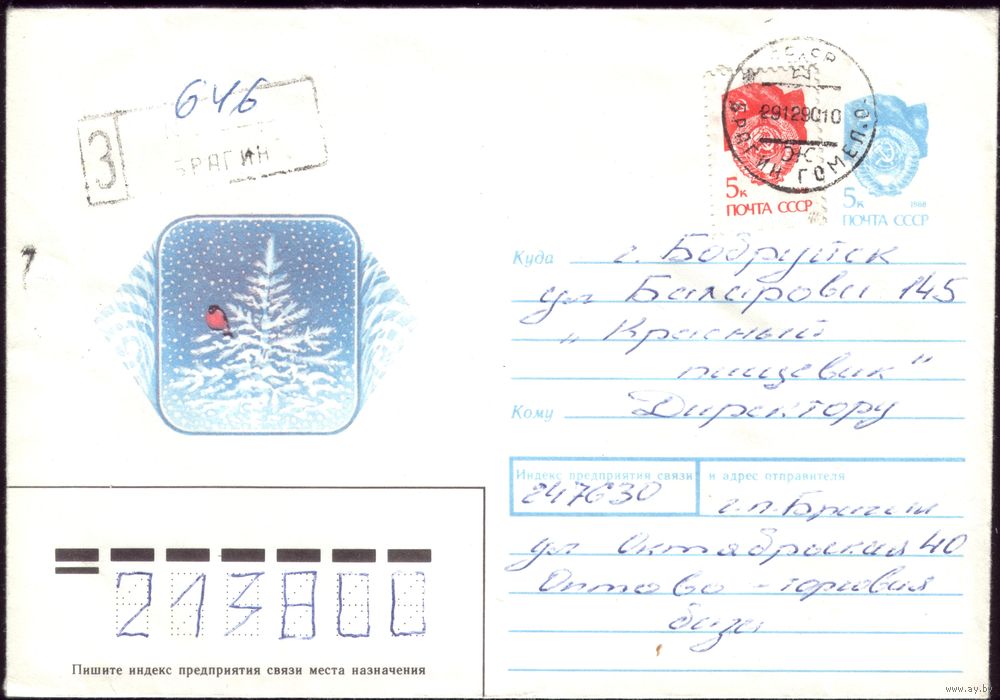 646
З
БРАГИН
БССР
29129010
БРАГИН ГОМЕЛ. О
5к
ПОЧТА СССР
5к 1988
ПОЧТА СССР
Куда г. Бобруйск
ул Бахарова 145
„Красный
пищевик"
Кому Директору
Индекс предприятия связи и адрес отправителя
247630 г.п. Брагин
ул Октябрьская 40
Оптово - торговая
база
213800
Пишите индекс предприятия связи места назначения
www.ay.by